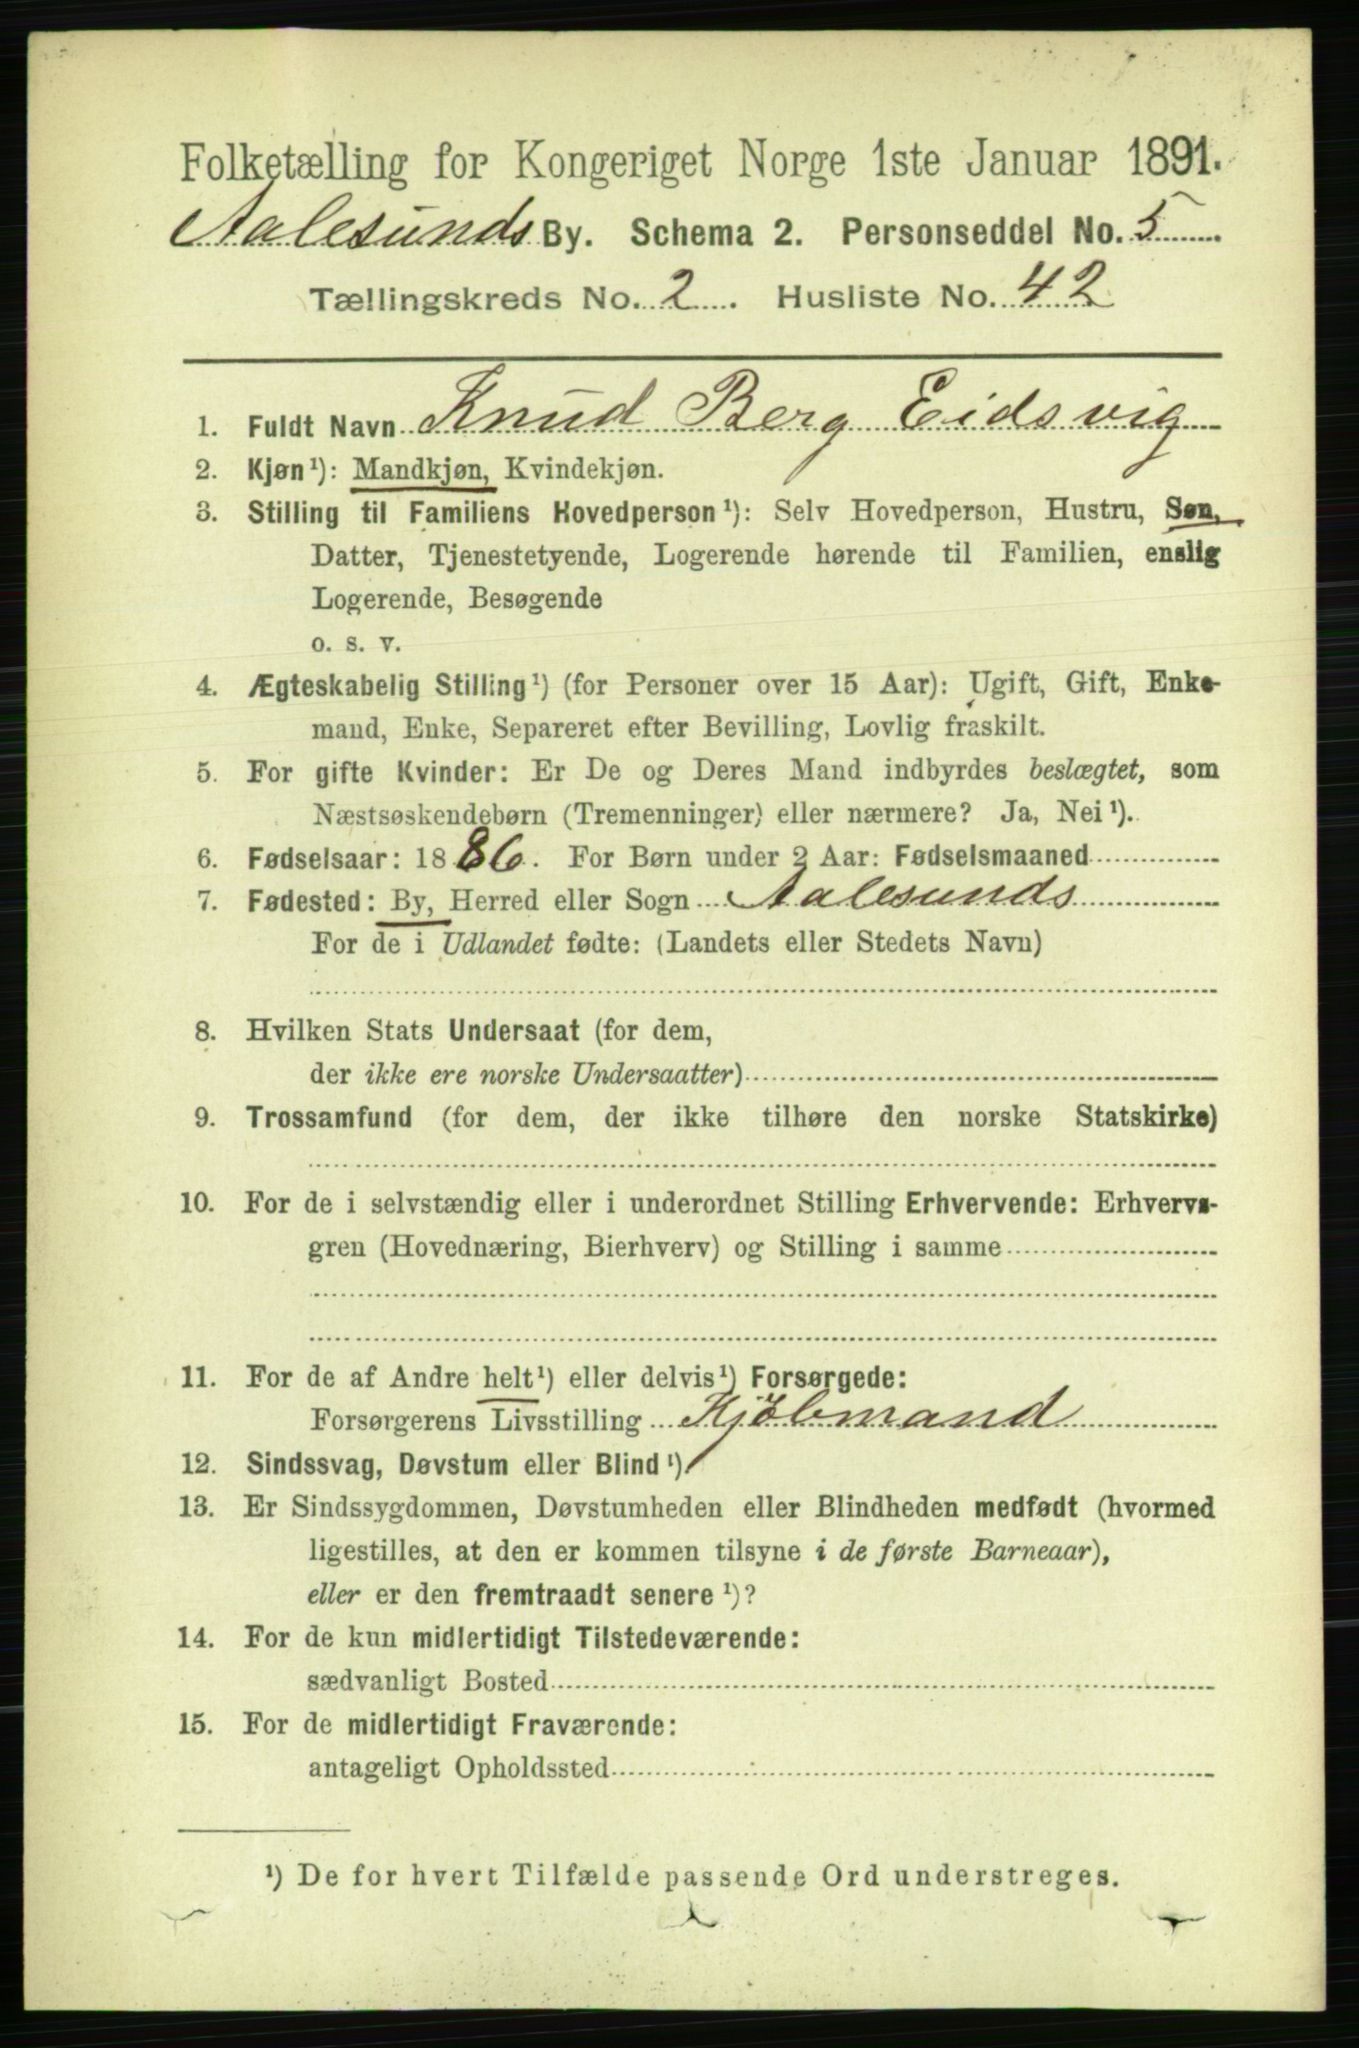 Folketælling for Kongeriget Norge 1ste Januar 1891.
Aalesunds By. Schema 2. Personseddel No. 5
Tællingskreds No. 2. Husliste No. 42
1. Fuldt Navn Knud Berg Eidsvig
2. Kjøn¹): Mandkjøn, Kvindekjøn.
3. Stilling til Familiens Hovedperson¹): Selv Hovedperson, Hustru, Søn,
Datter, Tjenestetyende, Logerende hørende til Familien, enslig
Logerende, Besøgende
o. s. v.
4. Ægteskabelig Stilling¹) (for Personer over 15 Aar): Ugift, Gift, Enke-
mand, Enke, Separeret efter Bevilling, Lovlig fraskilt.
5. For gifte Kvinder: Er De og Deres Mand indbyrdes beslægtet, som
Næstsøskendebørn (Tremenninger) eller nærmere? Ja, Nei¹).
6. Fødselsaar: 1886. For Børn under 2 Aar: Fødselsmaaned
7. Fødested: By, Herred eller Sogn Aalesunds
For de i Udlandet fødte: (Landets eller Stedets Navn)
8. Hvilken Stats Undersaat (for dem,
der ikke ere norske Undersaatter)
9. Trossamfund (for dem, der ikke tilhøre den norske Statskirke)
10. For de i selvstændig eller i underordnet Stilling Erhvervende: Erhvervs-
gren (Hovednæring, Bierhverv) og Stilling i samme
11. For de af Andre helt¹) eller delvis¹) Forsørgede:
Forsørgerens Livsstilling Kjøbmand
12. Sindssvag, Døvstum eller Blind¹).
13. Er Sindssygdommen, Døvstumheden eller Blindheden medfødt (hvormed
ligestilles, at den er kommen tilsyne i de første Barneaar),
eller er den fremtraadt senere¹)?
14. For de kun midlertidigt Tilstedeværende:
sædvanligt Bosted
15. For de midlertidigt Fraværende:
antageligt Opholdssted
¹) De for hvert Tilfælde passende Ord understreges.